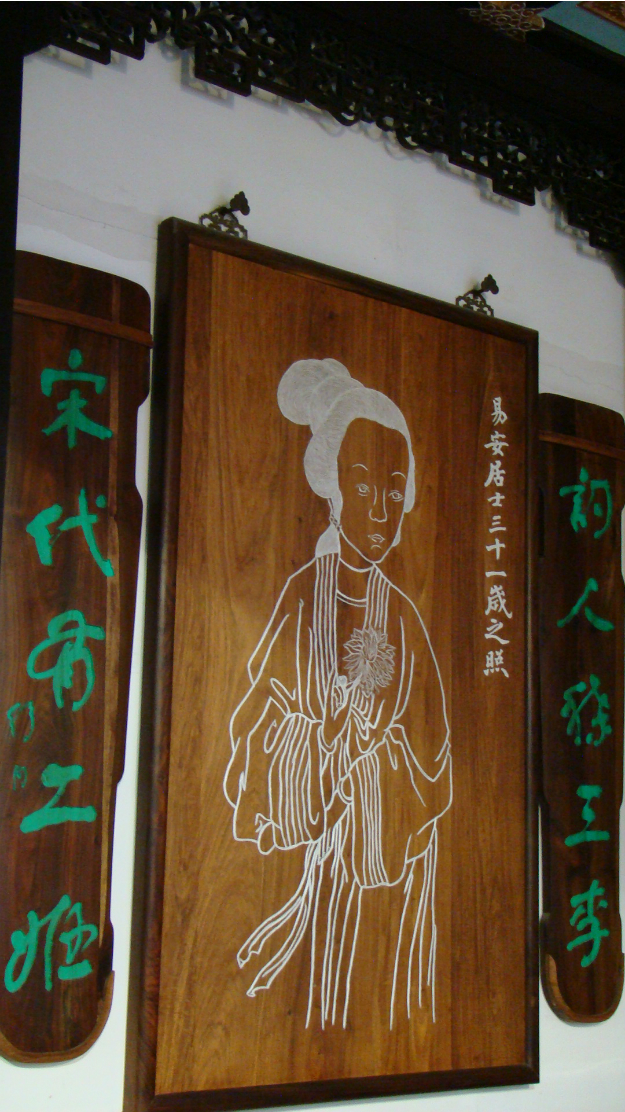 詞人稱三李
易安居士三十一歲之照
宋代有二姬